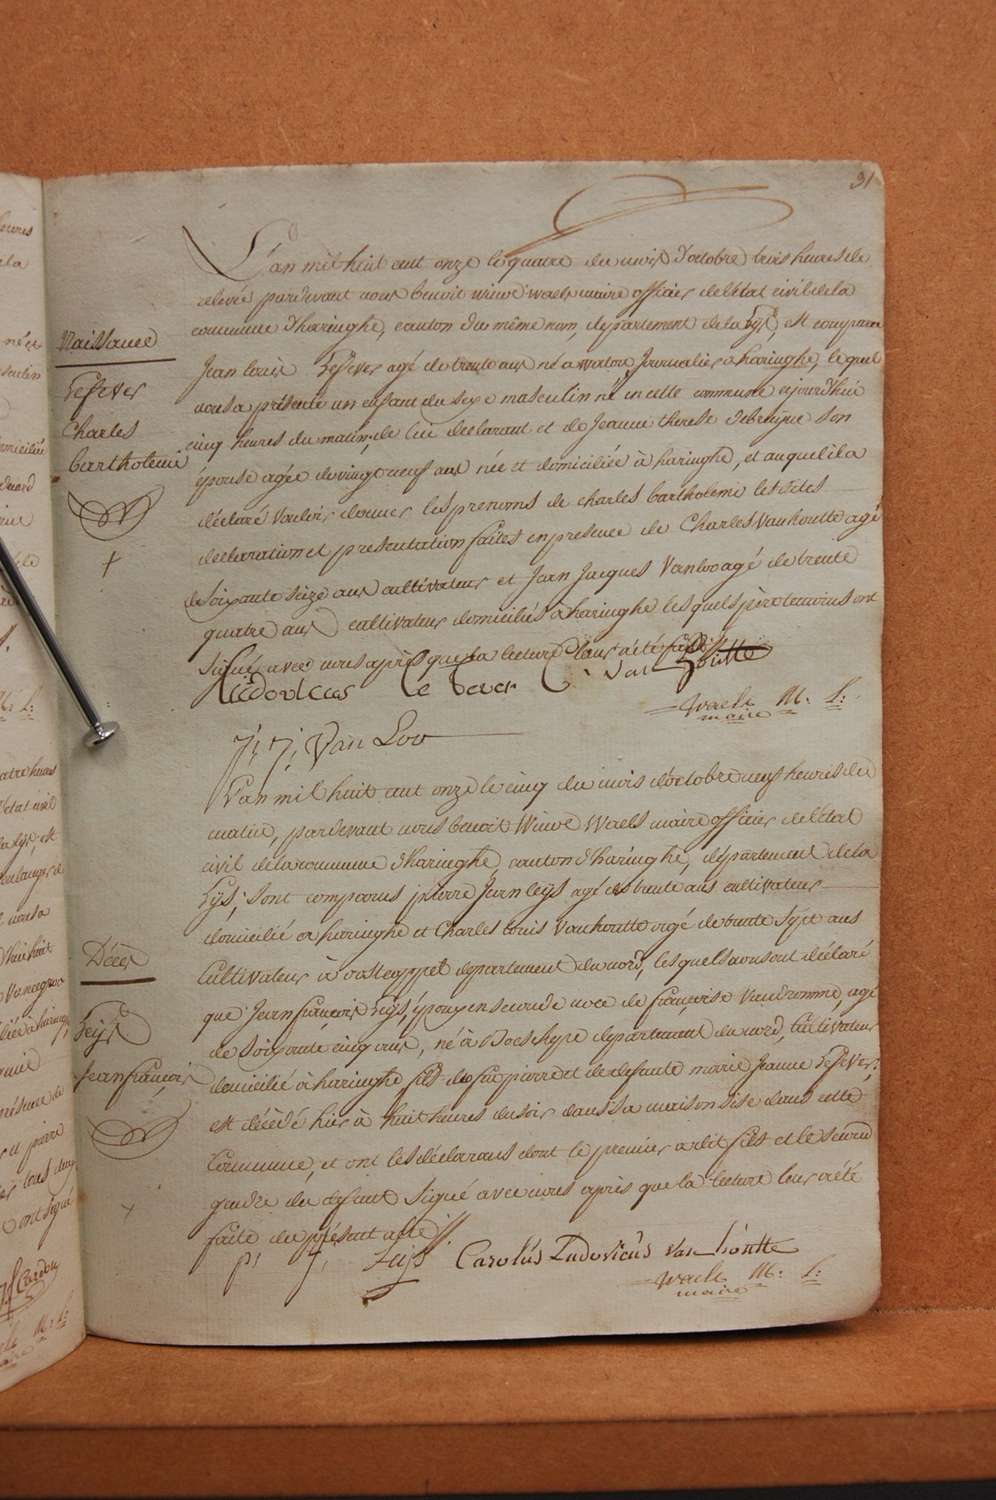 31
L'an mil huit cent onze le quatre du mois d'octobre trois heures de
relevée pardevant nous benoit Winoc Waels maire officier de l'état civil de la
commune d'haringhe, canton du même nom, département de la Lys, est comparu
Naissance
Jean louis Lefever agé de trente ans né a watou Journalier a haringhe, lequel
Lefever
nous a présenté un enfant du sexe masculin né en cette commune aujourd'huie
Charles
cinq heures du matin, de lui declarant et de Jeanne therese Debruyne son
bartholemi
épouse agée de vingt neuf ans née et domiciliée à haringhe, et auquel il a
déclaré vouloir donner les prenoms de charles bartholemi lesdites
declaration et presentation faites en presence de Charles Vanhoutte agé
+
de soixante seize ans cultivateur et Jean Jacques Vanloo agé de trente
quatre ans cultivateur domiciliés à haringhe lesquels père temoins ont
signés avec nous après que la lecture leur a été faite
Ludovicus Le fever C: van Houtte
Waels M. S:
maire
J: J: Van Loo
L'an mil huit cent onze le cinq du mois d'octobre neuf heures du
matin, pardevant nous benoit Winoc Waels maire officier de l'état
civil de la commune d'haringhe, canton d'haringhe, département de la
Lys; sont comparus pierre Jean leijs agé de trente ans cultivateur
domicilié a haringhe et Charles louis Vanhoutte agé de trente sept ans
Décès
Cultivateur à oostcappel departement du nord, lesquels nous ont déclaré
que Jean françois Leijs, époux en seconde noce de françoise Vandromme, agé
Leijs
de soixante cinq ans, né à Boeschepe departement du nord, Cultivateur
Jean françois
domicilié à haringhe, fils de feu pierre et de defunte marie Jeanne Lefever;
est décédé hier à huit heures du soir dans sa maison sise dans cette
Commune, et ont les déclarans dont le premier a dit fils et le second
+
gendre du defunt signé avec nous après que la lecture leur a été
faite du présent acte
p: J: Leijs Carolus Ludovicus van houtte
Waels M. S:
maire